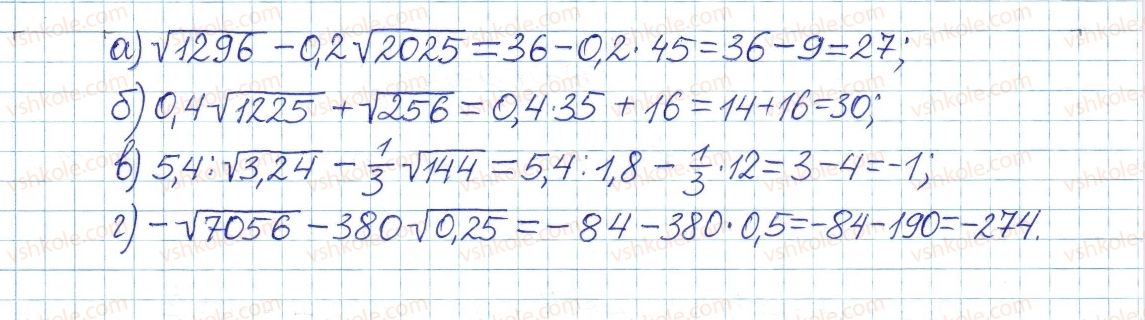 а) √1296 − 0,2√2025 = 36 − 0,2 · 45 = 36 − 9 = 27;
б) 0,4√1225 + √256 = 0,4 · 35 + 16 = 14 + 16 = 30;
в) 5,4 : √3,24 − 1/3 √144 = 5,4 : 1,8 − 1/3 · 12 = 3 − 4 = −1;
г) −√7056 − 380√0,25 = −84 − 380 · 0,5 = −84 − 190 = −274.
vshkole.com